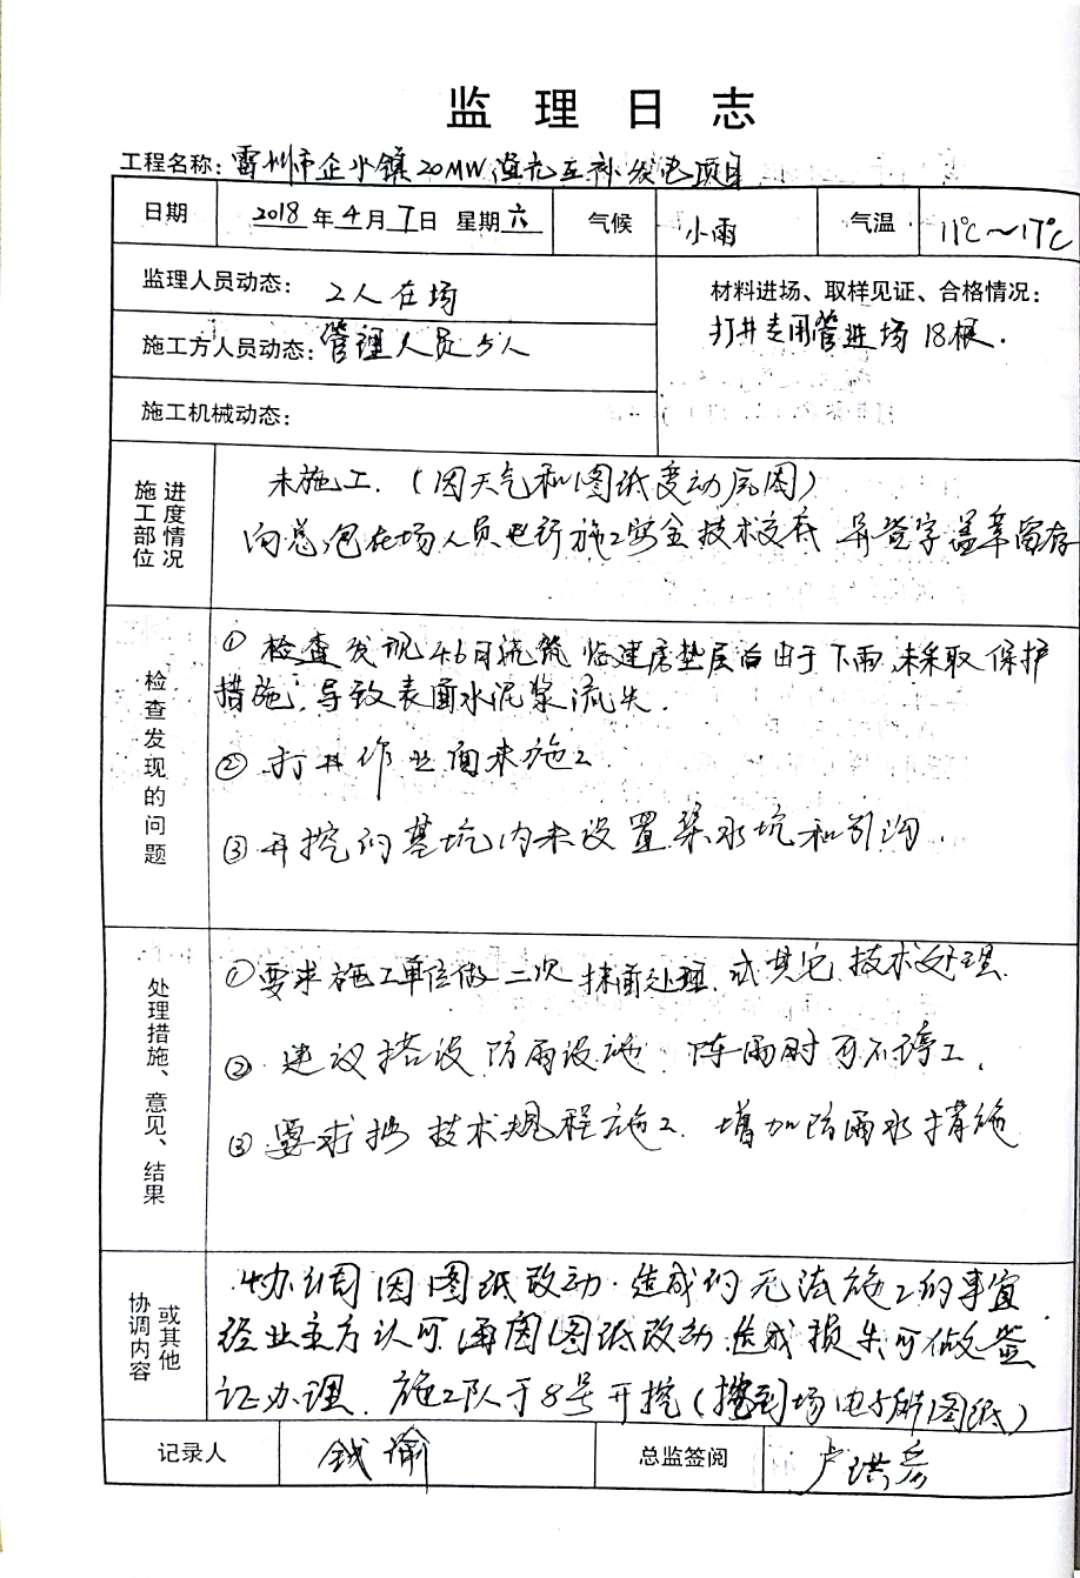 监理日志
工程名称：雷州市企水镇20MW渔光互补发电项目
日期 2018年4月7日 星期六 气候 小雨 气温 11℃～17℃
监理人员动态： 2人在场
材料进场、取样见证、合格情况：
打井专用管进场18根.
施工方人员动态：管理人员5人
施工机械动态：
施工部位 进度情况
未施工.（因天气和图纸变动原因）
向总包在场人员进行施工安全技术交底 并签字盖章留存
检查发现的问题
① 检查发现4.6日浇筑临建房垫层面由于下雨未采取保护
措施，导致表面水泥浆流失.
② 打井作业面未施工
③ 开挖的基坑内未设置集水坑和引沟.
处理措施、意见、结果
①要求施工单位做二次抹面处理.或其它技术处理.
② 建议搭设防雨设施.阵雨时可不停工.
③ 要求按技术规程施工.增加防雨水措施
协调内容 或其他
协调因图纸改动.造成的无法施工的事宜.
经业主方认可,再因图纸改动造成损失可做签
证办理.施工队于8号开挖（按到场电子解图纸）
记录人 钱谕 总监签阅 卢洪彦